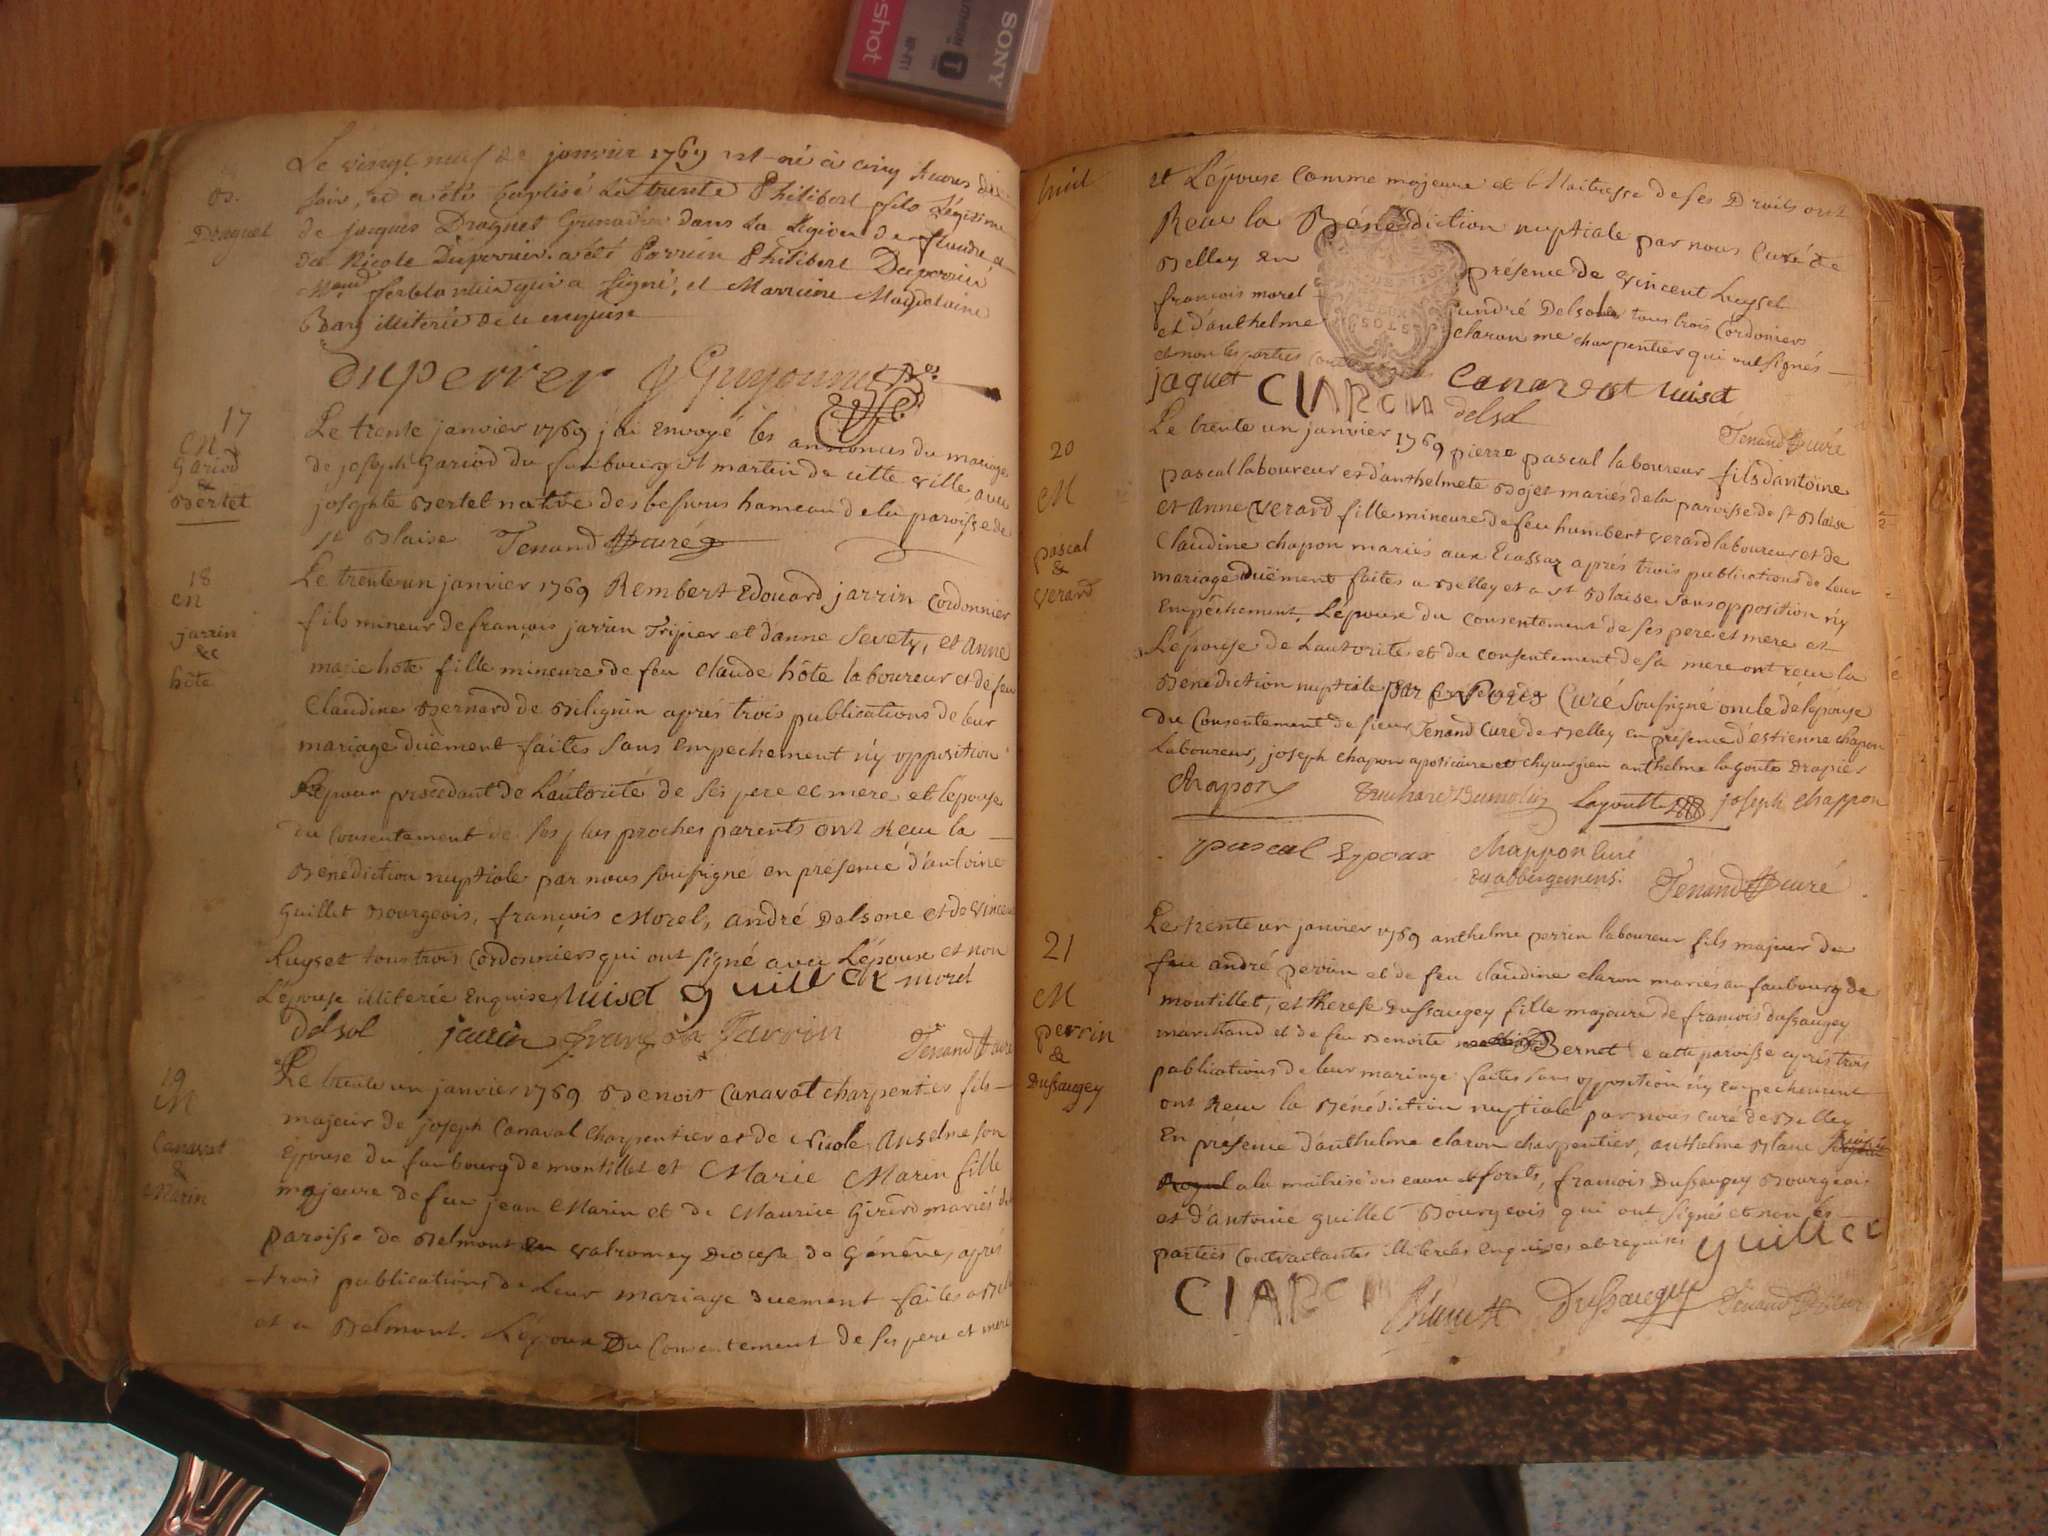 SONY
shot
Le vingt neuf de janvier 1769 est né à cinq heures du
soir, et a été baptisé Philibert fils Légitime
de jacques Draguet Grenadier dans La Légion de flandre
de Nicole Duperrier a été Parrein Philibert Duperrier
qui a signé, et Marreine Magdelaine
illiterée de ce enquise
Draguet
duperrier
17
M
Gariod
&
Bertet
Le trente janvier 1769 j'ai envoyé les annonces du mariage
de joseph Gariod du faubourg st martin de cette ville, avec
josephte Bertet native des hameau de la paroisse de
st Blaise Tenand curé
18
M
jarrin
&
hôte
Le trente un janvier 1769 Rembert Edouard jarrin Cordonnier
fils mineur de françois jarrin Tripier et d'anne Sevety, et Anne
marie hôte fille mineure de feu Claude hôte laboureur et de feu
Claudine Bernard de Bilignin aprés trois publications de leur
mariage düement faites sans empechement n'y opposition
L'epoux procedant de L'autorité de ses pere et mere et l'epouse
du Consentement de ses plus proches parents ont Reçu la
Benediction nuptiale par nous soussigné en présence d'antoine
Guillet Bourgeois, françois Morel, andré Delsone et de Vincent
Luyset tous trois Cordonniers qui ont signé avec L'époux et non
L'épouse illiterée Enquise luiset guillet morel
delsol jarrin françois Jarrin Tenand curé
19
M
Canavat
&
Marin
Le trente un janvier 1769 Benoit Canavat Charpentier fils
majeur de joseph Canavat Charpentier et de Nicole Anselme son
épouse du faubourg de montillet et Marie Marin fille
majeure de feu jean Marin et de Maurice Girard mariés de
paroisse de Belmont en valromey Diocese de Génêve, aprés
trois publications de Leur mariage duement faites a Belley
et a Belmont. L'époux Du Consentement de ses pere et mere
huit
et L'épouse Comme majeure et Maitresse de ses Droits ont
Recu la Bénédiction nuptiale par nous Curé de
Belley en présence de Vincent Luyset
françois morel andré Delsol tous trois Cordoniers
et d'anthelme claron me charpentier qui ont signés
et non les parties
jaquet CIARON Canavat luiset
delsol Tenand curé
20
M
pascal
&
verard
Le trente un janvier 1769 pierre pascal laboureur fils d'antoine
pascal laboureur et d'anthelmete Bojet mariés de la paroisse de st Blaise
et Anne verard fille mineure de feu humbert verard laboureur et de
Claudine chapon mariés aux Ecassaz aprés trois publications de Leur
mariage duëment faites a Belley et a st Blaise sans opposition n'y
Empêchement, L'epoux du consentement de ses pere et mere et
L'épouse de L'autorité et du consentement de sa mere ont reçu la
Bénédiction nuptiale par Curé Soussigné oncle de l'épouse
du Consentement de sieur Tenand Curé de Belley en présence d'estienne chapon
Laboureur, joseph chapon apoticaire et chyrurgien anthelme lagoute Drapier
Chapon Dumolin Lagoutte joseph Chappon
pascal Epoux Chappon curé
des abbergemens. Tenand curé
21
M
perrin
&
Dussaugey
Le trente un janvier 1769 anthelme perrin laboureur fils majeur de
feu andré perrin et de feu claudine claron mariés au faubourg de
montillet, et therese Dussaugey fille majeure de francois dussaugey
marchand et de feu Benoite Bernet de cette paroisse aprés trois
publications de leur mariage faites sans opposition n'y empechement
ont Reçu la Bénédiction nuptiale par nous curé de Belley
En présence d'anthelme claron charpentier, anthelme Blanc
a la maitrise des eaux et forets, francois Dussaugey Bourgeois
et d'antoine guillet Bourgeois qui ont signés et non les
parties contractantes illiterées Enquises et requises guillet
CIARON Dussaugey Tenand curé